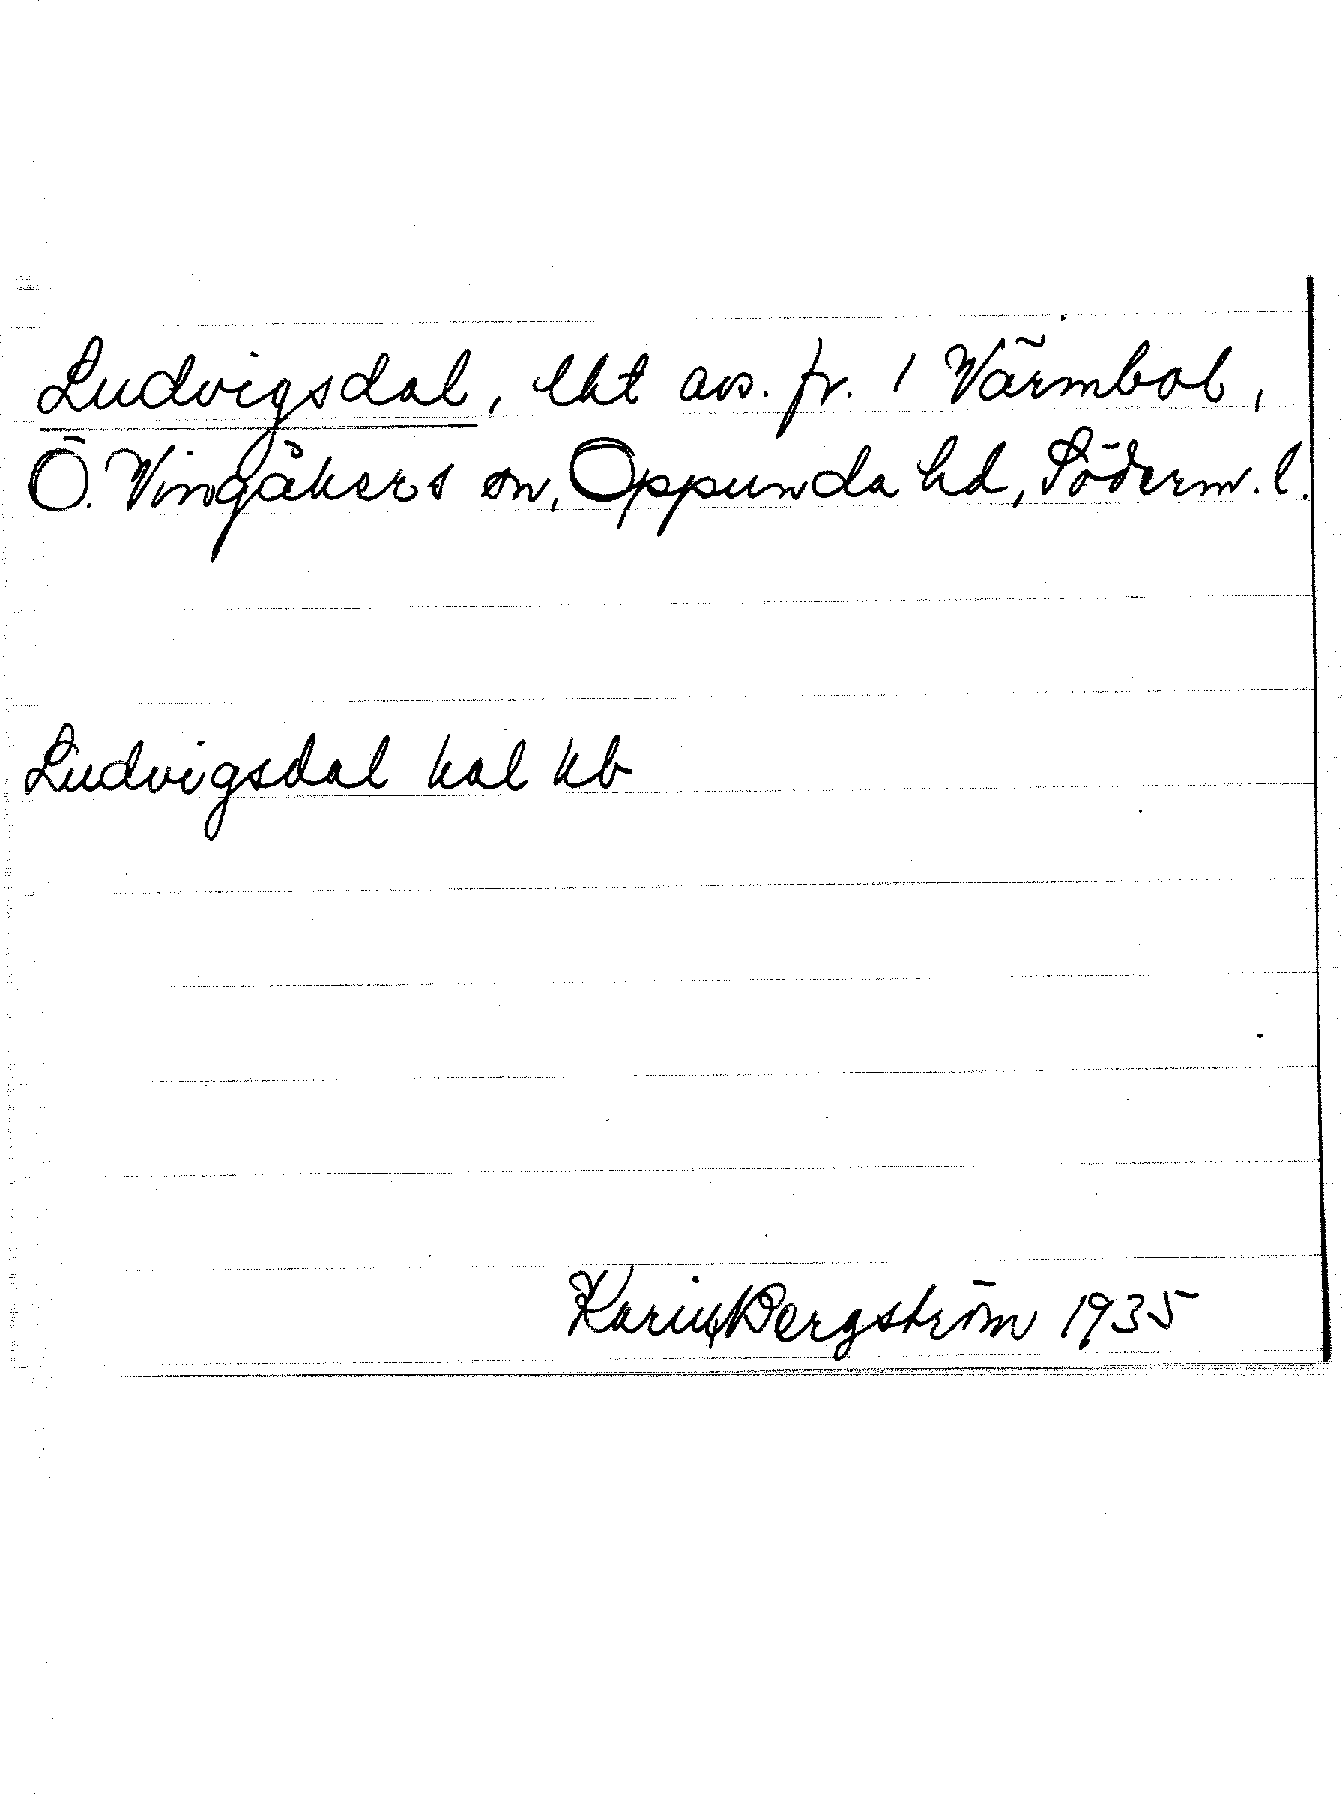 Ludvigsdal, lht avs. fr. 1 Värmbol,
Ö. Vingåkers sn, Oppunda hd, Söderm. l.
Ludvigsdal hal kb
Karin Bergström 1935